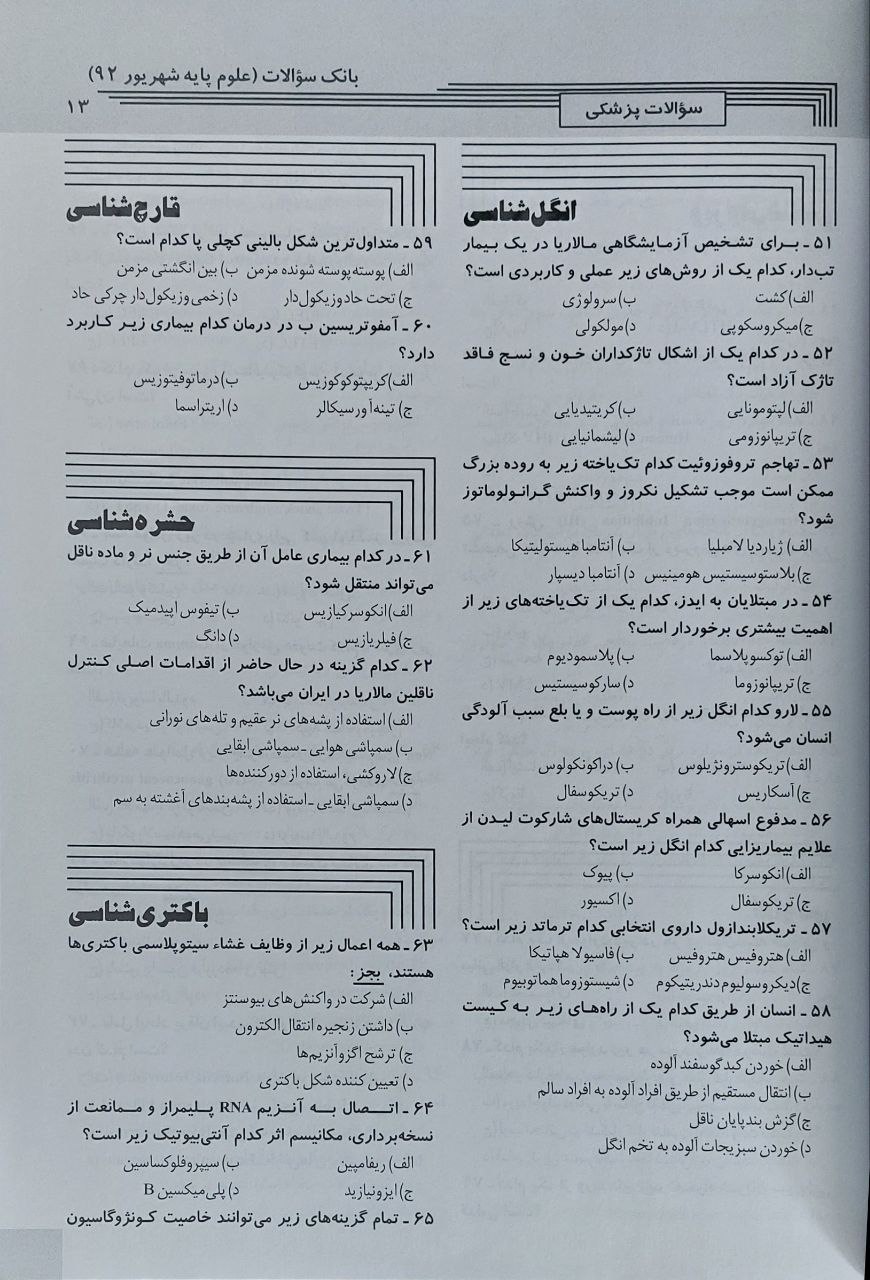 بانک سؤالات (علوم پایه شهریور ۹۲)
۱۳
سؤالات پزشکی
انگل‌شناسی
۵۱ ـ بـرای تشخیص آزمـایشگاهی مـالاریا در یک بیمار
تب‌دار، کدام یک از روش‌های زیر عملی و کاربردی است؟
الف) کشت ب) سرولوژی
ج) میکروسکوپی د) مولکولی
۵۲ ـ در کدام یک از اشکال تاژکداران خون و نسج فـاقد
تاژک آزاد است؟
الف) لپتومونایی ب) کریتیدیایی
ج) تریپانوزومی د) لیشمانیایی
۵۳ ـ تهاجم تروفوزوئیت کدام تک‌یاخته زیر به روده بزرگ
ممکن است موجب تشکیل نکروز و واکنش گرانـولوماتوز
شود؟
الف) ژیاردیا لامبلیا ب) آنتامبا هیستولیتیکا
ج) بلاستوسیستیس هومینیس د) آنتامبا دیسپار
۵۴ ـ در مبتلایان به ایدز، کدام یک از تک‌یاخته‌های زیر از
اهمیت بیشتری برخوردار است؟
الف) توکسوپلاسما ب) پلاسمودیوم
ج) تریپانوزوما د) سارکوسیستیس
۵۵ ـ لارو کدام انگل زیر از راه پوست و یا بلع سبب آلودگی
انسان می‌شود؟
الف) تریکوسترونژیلوس ب) دراکونکولوس
ج) آسکاریس د) تریکوسفال
۵۶ ـ مدفوع اسهالی همراه کریستال‌های شارکوت لیـدن از
علایم بیماریزایی کدام انگل زیر است؟
الف) انکوسرکا ب) پیوک
ج) تریکوسفال د) اکسیور
۵۷ ـ تریکلابندازول داروی انتخابی کدام ترماتد زیر است؟
الف) هتروفیس هتروفیس ب) فاسیولا هپاتیکا
ج) دیکروسولیوم دندریتیکوم د) شیستوزوما هماتوبیوم
۵۸ ـ انسان از طریق کدام یک از راه‌های زیـر بـه کـیست
هیداتیک مبتلا می‌شود؟
الف) خوردن کبد گوسفند آلوده
ب) انتقال مستقیم از طریق افراد آلوده به افراد سالم
ج) گزش بندپایان ناقل
د) خوردن سبزیجات آلوده به تخم انگل
قارچ‌شناسی
۵۹ ـ متداول‌ترین شکل بالینی کچلی پا کدام است؟
الف) پوسته‌پوسته شونده مزمن ب) بین انگشتی مزمن
ج) تحت حاد وزیکول‌دار د) زخمی وزیکول‌دار چرکی حاد
۶۰ ـ آمفوتریسین ب در درمان کدام بیماری زیـر کـاربرد
دارد؟
الف) کریپتوکوکوزیس ب) درماتوفیتوزیس
ج) تینه‌آ ورسیکالر د) اریتراسما
حشره‌شناسی
۶۱ ـ در کدام بیماری عامل آن از طریق جنس نر و ماده ناقل
می‌تواند منتقل شود؟
الف) انکوسرکیازیس ب) تیفوس اپیدمیک
ج) فیلریازیس د) دانگ
۶۲ ـ کدام گزینه در حال حاضر از اقدامات اصلی کـنترل
ناقلین مالاریا در ایران می‌باشد؟
الف) استفاده از پشه‌های نر عقیم و تله‌های نورانی
ب) سمپاشی هوایی ـ سمپاشی ابقایی
ج) لاروکشی، استفاده از دورکننده‌ها
د) سمپاشی ابقایی ـ استفاده از پشه‌بندهای آغشته به سم
باکتری‌شناسی
۶۳ ـ همه اعمال زیر از وظایف غشاء سیتوپلاسمی باکتری‌ها
هستند، بجز:
الف) شرکت در واکنش‌های بیوسنتز
ب) داشتن زنجیره انتقال الکترون
ج) ترشح اگزوآنزیم‌ها
د) تعیین کننده شکل باکتری
۶۴ ـ اتـصال بـه آنـزیم RNA پـلیمراز و مـمانعت از
نسخه‌برداری، مکانیسم اثر کدام آنتی‌بیوتیک زیر است؟
الف) ریفامپین ب) سیپروفلوکساسین
ج) ایزونیازید د) پلی‌میکسین B
۶۵ ـ تمام گزینه‌های زیر می‌توانند خاصیت کـونژوگاسیون